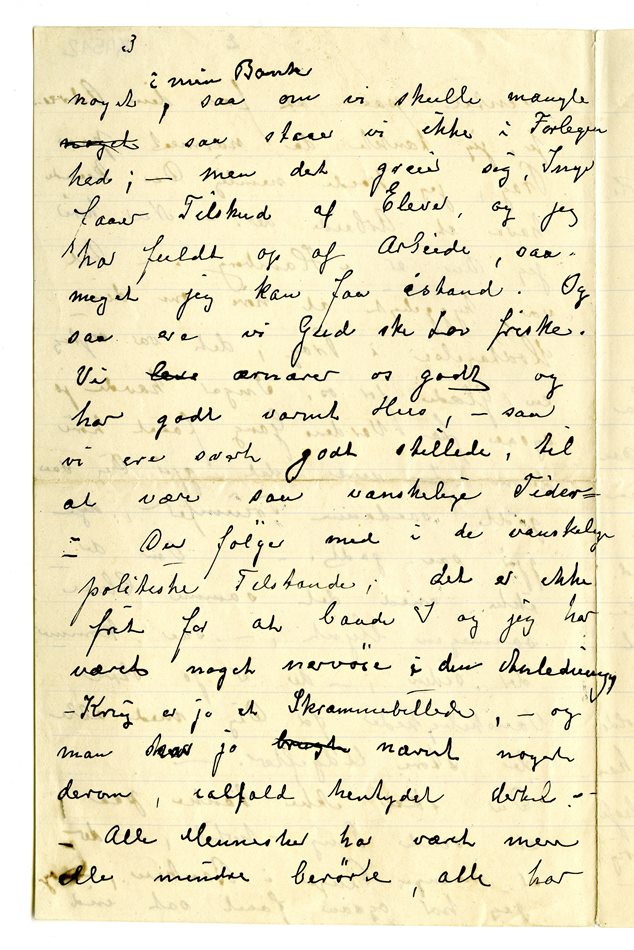 3
i min Bank
noget, saa om vi skulle mangle
noget saa staar vi ikke i Forlegen
hed; – men det greier sig, Inga
faaer Tilskud af Elever, og jeg
har fuldt op af Arbeide, saa
meget jeg kan faa istand. Og
saa ere vi Gud ske Lov friske.
Vi leve ernærer os godt og
har godt varmt Hus, – saa
vi ere svært godt stillede, til
at være saa vanskelige Tider=
= Du følger med i de vanskelige
politiske Tilstande; det er ikke
frit for at baade I og jeg har
været noget nervøse i den Anledning,
– Krig er jo et Skræmmebillede, – og
man har jo brugt nævnt noget
derom, ialfald hentydet dertil. –
– Alle Mennesker har været mere
elle mindre berørte, alle har